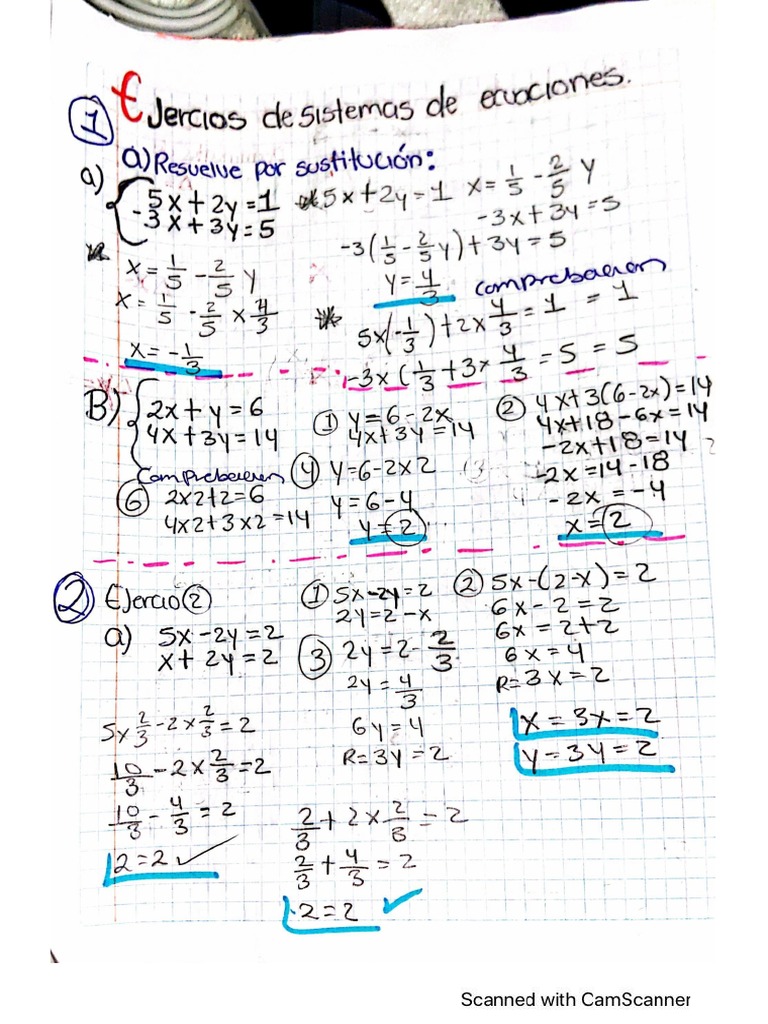 1 Ejercios de sistemas de ecuaciones.
a) Resuelve por sustitución:
a) 5x + 2y = 1
-3x + 3y = 5
5x + 2y = 1
x = 1/5 - 2/5 y
-3x + 3y = 5
-3(1/5 - 2/5 y) + 3y = 5
y = 4/3
x = 1/5 - 2/5 y
x = 1/5 - 2/5 x 4/3
x = -1/3
comprobacion
5x(-1/3) + 2x 4/3 = 1 = 1
-3x (1/3 + 3x 4/3 = 5 = 5
B) 2x + y = 6
4x + 3y = 14
① y = 6 - 2x
4x + 3y = 14
② 4x + 3(6 - 2x) = 14
4x + 18 - 6x = 14
-2x + 18 = 14
-2x = 14 - 18
-2x = -4
x = 2
④ y = 6 - 2x2
y = 6 - 4
y = 2
Comprobacion
⑥ 2x2+2=6
4x2+3x2=14
2 Ejercio ②
a) 5x - 2y = 2
x + 2y = 2
① 5x - 2y = 2
2y = 2 - x
② 5x - (2 - x) = 2
6x - 2 = 2
6x = 2 + 2
6x = 4
R = 3x = 2
③ 2y = 2 - 2/3
2y = 4/3
6y = 4
R = 3y = 2
x = 3x = 2
y - 3y = 2
5x 2/3 - 2x 2/3 = 2
10/3 - 2x 2/3 = 2
10/3 - 4/3 = 2
2 = 2 ✓
2/3 + 2x 2/3 = 2
2/3 + 4/3 = 2
2 = 2 ✓
Scanned with CamScanner